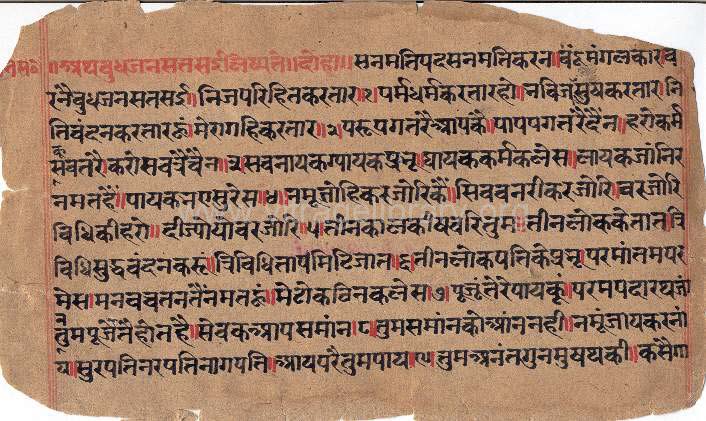 ॥अथबुधजनसतसईलिष्यते॥दोहा॥सनमतिपदसनमतिकरन।बंदूंमंगलकार।व
रनैबुधजनसतसई।निजपरिहितकरतार।१।पर्मधर्मकरतारहो।नविजनसुषकरतार।नि
नितिवंदनकरतारहूं।मेरागहिकरतार।२।परूंपगतरैआपकै।पापपगतरैदैन।हरोकर्म
सबतरै।करोसबत्रैचैन।३।सबलायकग्यायकप्रभू।घायककर्मकलेस।लायकजांनिर
नमतहैं।पायकभएसुरेस।४।नमूंतोहिकरजोरिकैं।सिवबनरीकरजोरि।वरजोरि
विधिकीहरो।दीज्योयावरजोरि।५।तीनकालकीषबरितुम।तीनलोककेतात।त्रि
विधिसुद्धवंदनकरूं।त्रिविधितापमिटिजात।६।तीनलोकपतिकेप्रभू।परमांतमपर
मेस।मनवचतनतैंनमतहूं।मेटोकठिनकलेस।७।पूजूंतेरेपायकूं।परमपदारथजां
न।तुमपूजेतैहोतहैं।सेवकआपसमांन।८।तुमसमांनकोआंननही।नमूंजायकरनां
य।सुरपतिनरपतिनागपति।आयपरैतुमपाय।९।तुमअनंतगुनमुषथकी।कैसैगा